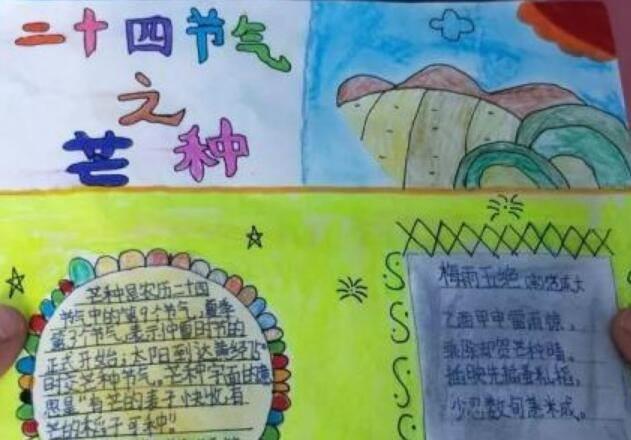 二十四节气
之
芒种
芒种是农历二十四
节气中的第9个节气,夏季
第3个节气,表示仲夏时节的
正式开始;太阳到达黄经75°
时交芒种节气。芒种字面的意
思是“有芒的麦子快收,有
芒的稻子可种”。
梅雨五绝 (宋)范成大
乙酉甲申雷雨惊,
乘除却贺芒种晴。
插秧先插蚤籼稻,
少忍数旬蒸米成。